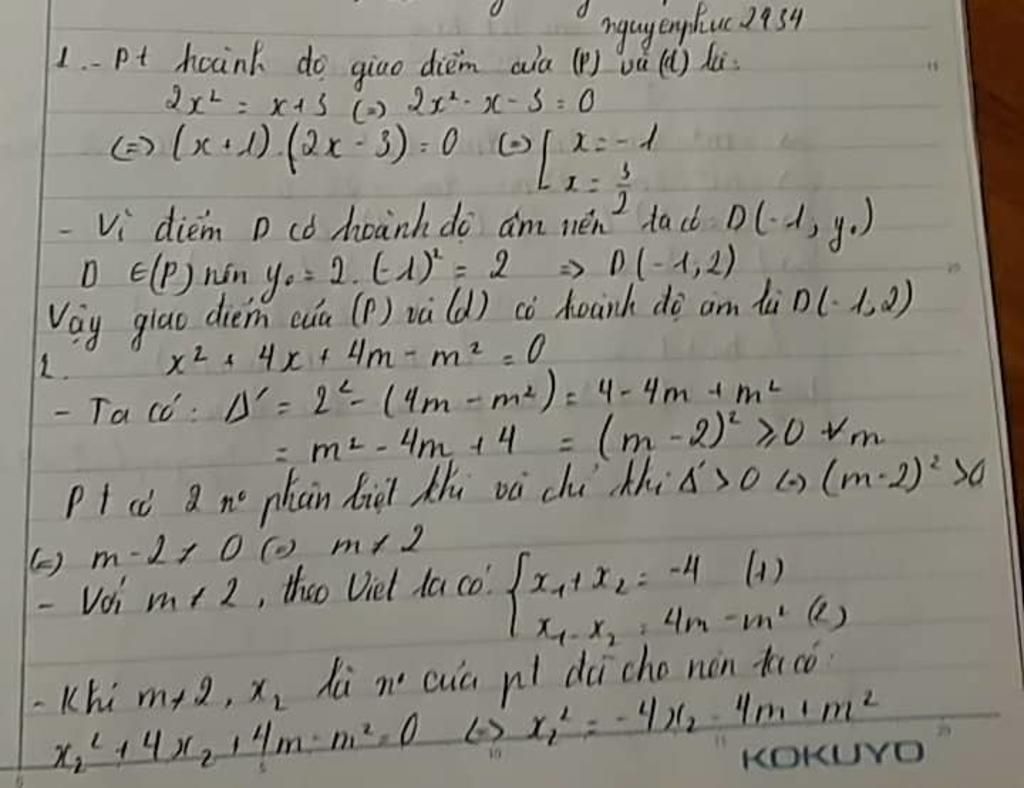 nguyenphuc2934
1.- Pt hoành độ giao điểm của (P) và (d) là:
2x² = x+3 (=) 2x² - x - 3 = 0
(=) (x+1).(2x-3) = 0 (=) [ x = -1
x = 3/2
- Vì điểm D có hoành độ âm nên ta có D(-1, y₀)
D ∈(P) nên y₀ = 2.(-1)² = 2 => D(-1,2)
Vậy giao điểm của (P) và (d) có hoành độ âm là D(-1,2)
2. x² + 4x + 4m - m² = 0
- Ta có: Δ' = 2² - (4m - m²) = 4 - 4m + m²
= m² - 4m + 4 = (m-2)² ≥ 0 ∀m
Pt có 2 n° phân biệt khi và chỉ khi Δ' > 0 (=) (m-2)² > 0
(=) m-2 ≠ 0 (=) m ≠ 2
- Với m ≠ 2, theo Viet ta có: { x₁ + x₂ = -4 (1)
x₁.x₂ = 4m - m² (2)
- Khi m ≠ 2, x₂ là n° của pt đã cho nên ta có:
x₂² + 4x₂ + 4m - m² = 0 (=) x₂² = -4x₂ - 4m + m²
KOKUYO